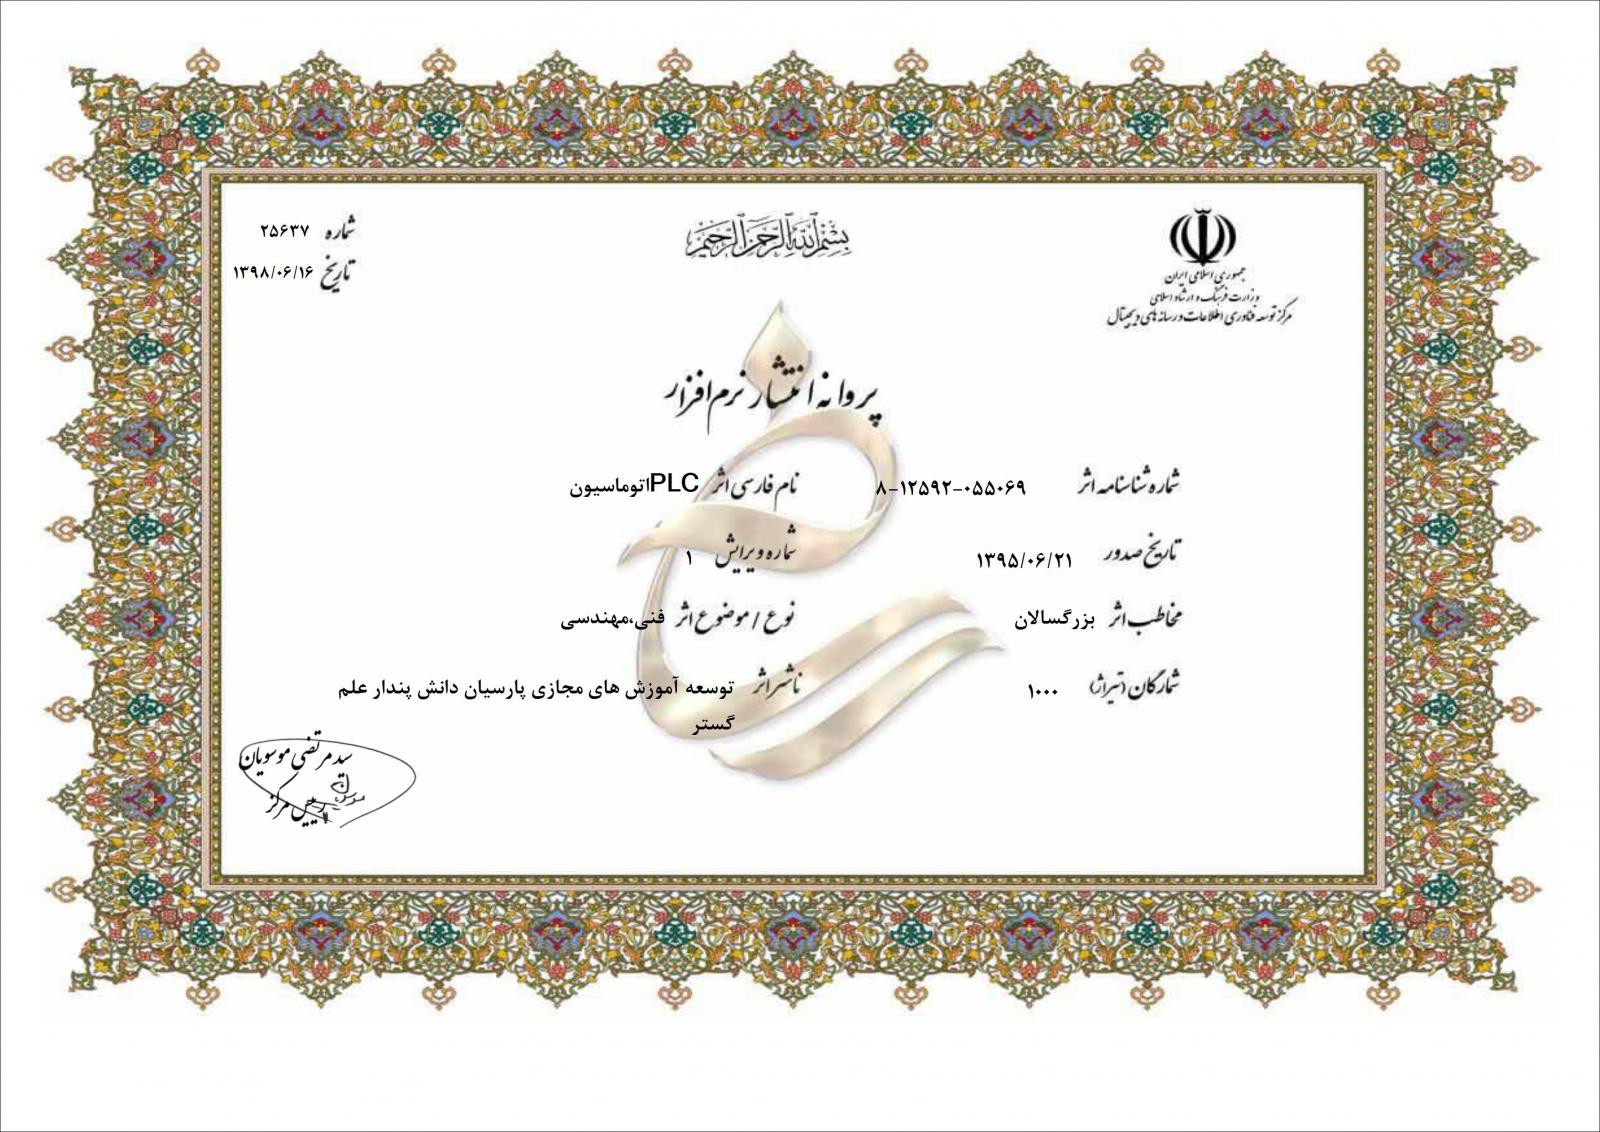 بسم الله الرحمن الرحیم
جمهوری اسلامی ایران
وزارت فرهنگ و ارشاد اسلامی
مرکز توسعه فناوری اطلاعات و رسانه های دیجیتال
شماره ۲۵۶۳۷
تاریخ ۱۳۹۸/۰۶/۱۶
پروانه انتشار نرم افزار
شماره شناسنامه اثر ۸-۱۲۵۹۲-۰۵۵۰۶۹
نام فارسی اثر PLCاتوماسیون
تاریخ صدور ۱۳۹۵/۰۶/۲۱
شماره ویرایش ۱
مخاطب اثر بزرگسالان
نوع / موضوع اثر فنی،مهندسی
شمارگان (تیراژ) ۱۰۰۰
ناشر اثر توسعه آموزش های مجازی پارسیان دانش پندار علم
گستر
سید مرتضی موسویان
رییس مرکز